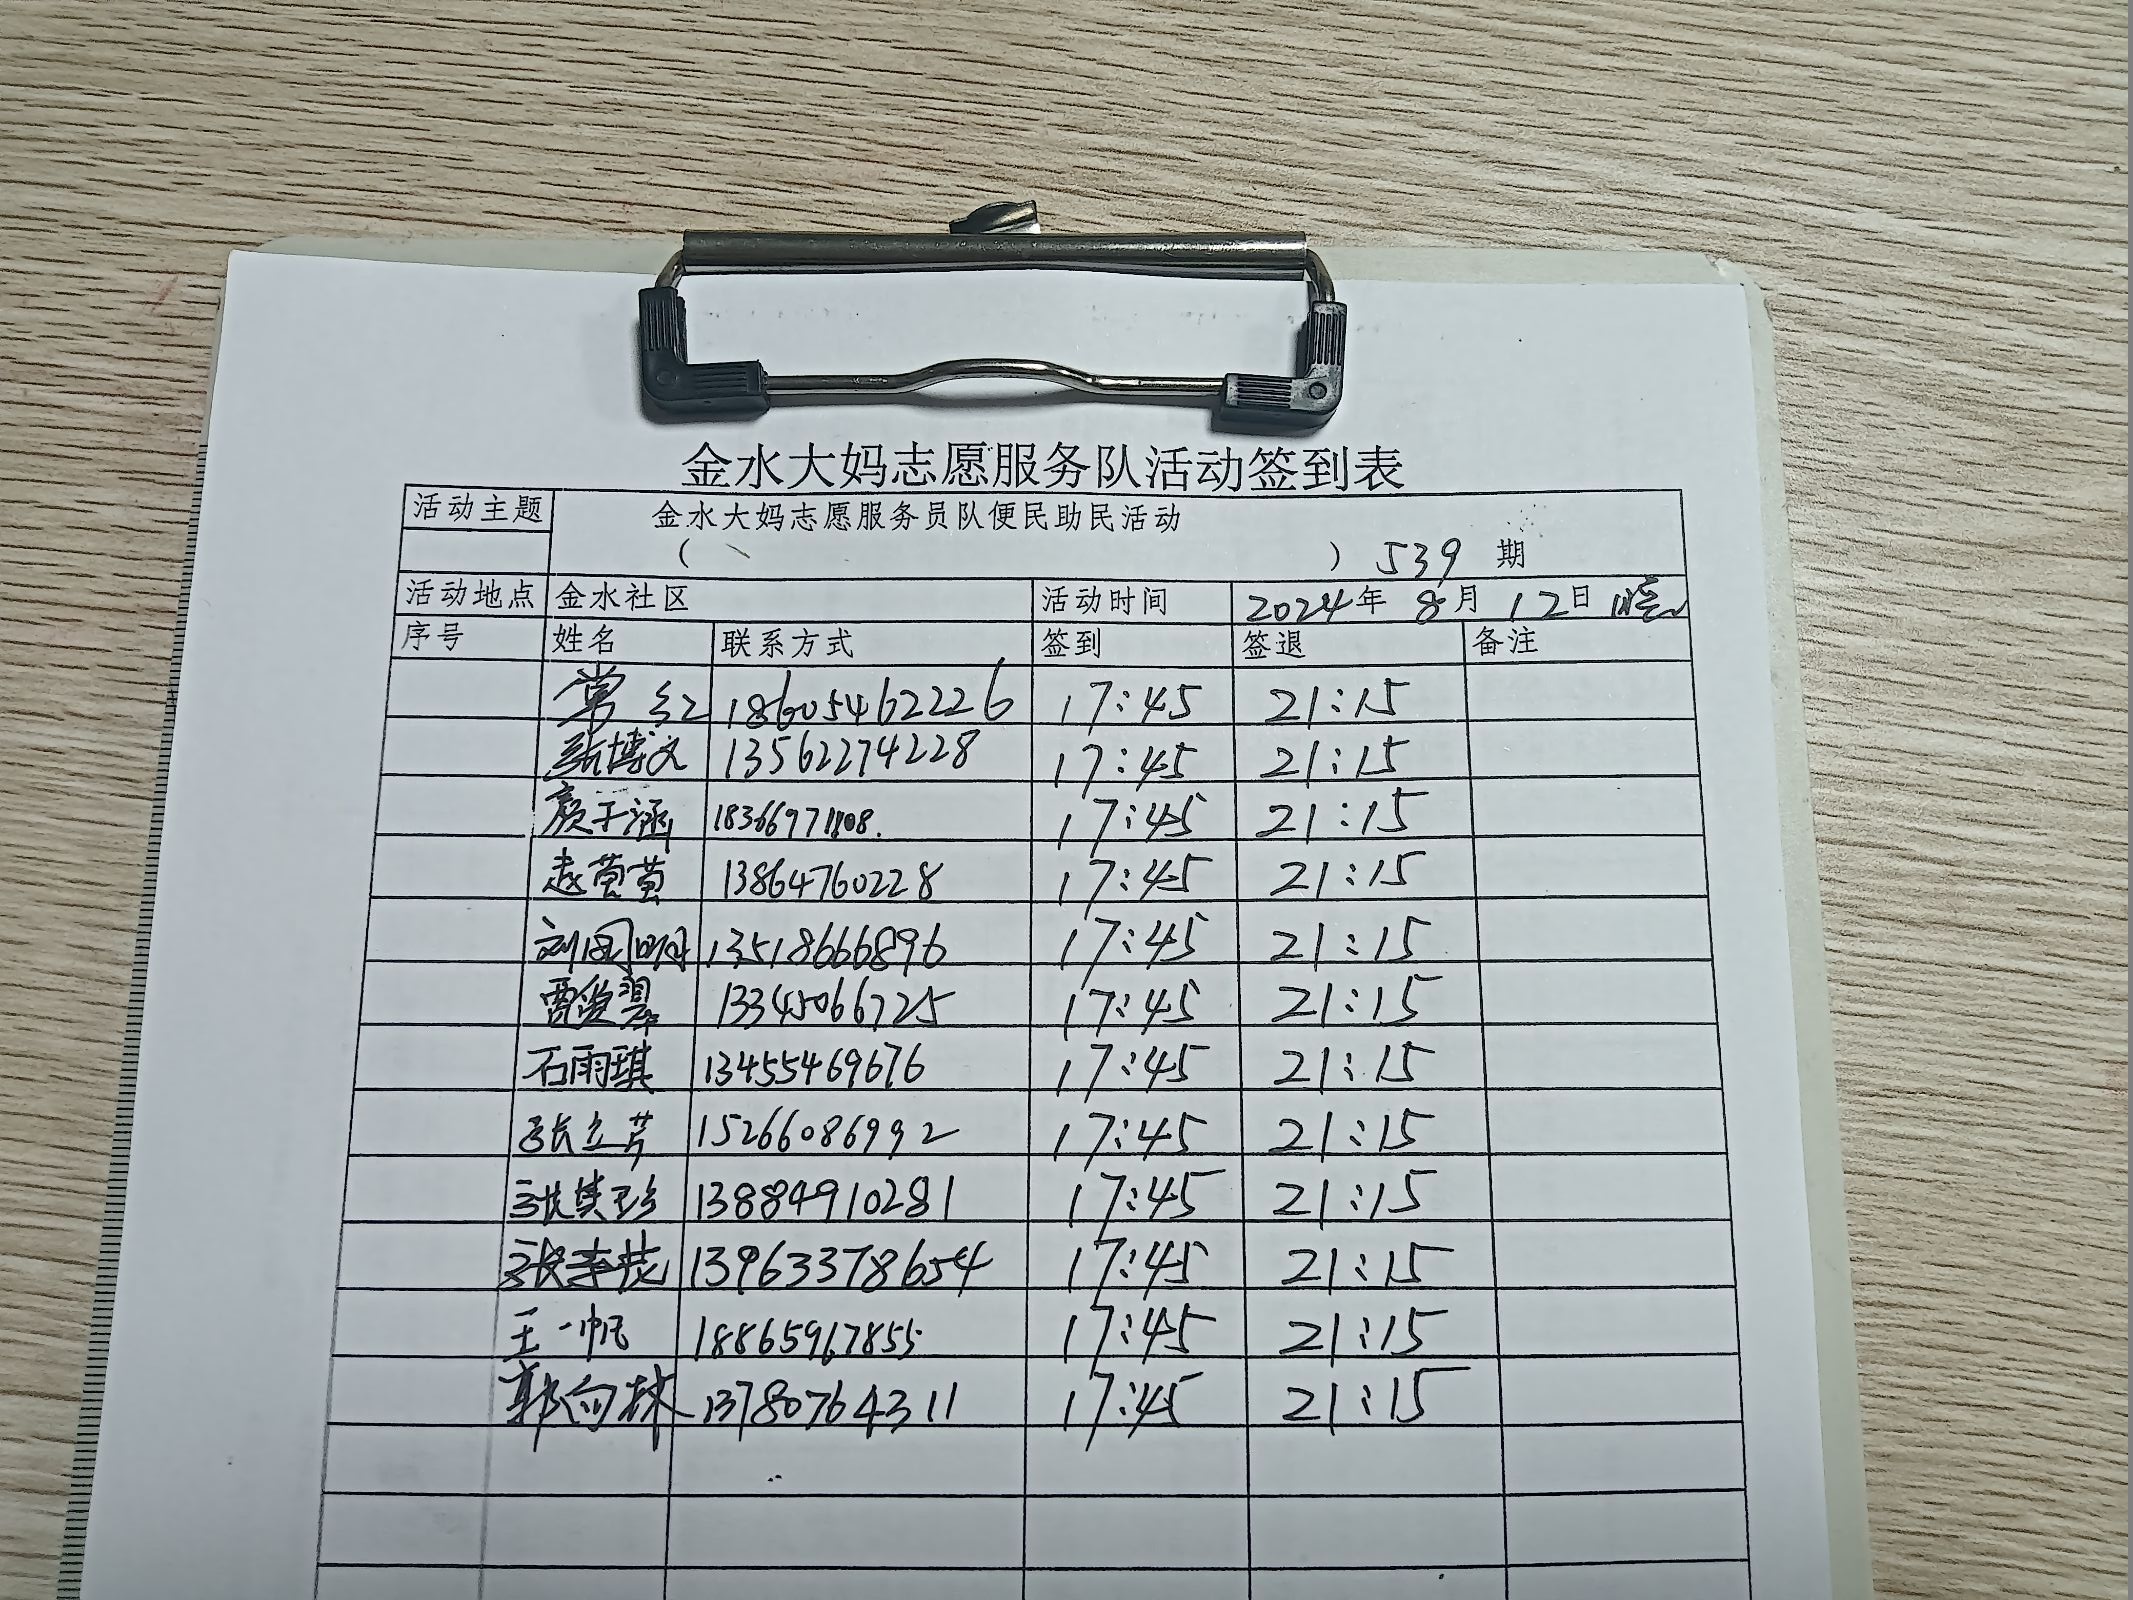 金水大妈志愿服务队活动签到表
活动主题 金水大妈志愿服务员队便民助民活动
( ) 539 期
活动地点 金水社区 活动时间 2024年 8月 12日 晚
序号 姓名 联系方式 签到 签退 备注
常红 18605462226 17:45 21:15
张博文 13562274228 17:45 21:15
颜子涵 18366971808. 17:45 21:15
赵莹莹 13864760228 17:45 21:15
刘国明 13518666896 17:45 21:15
贾俊翠 13345066725 17:45 21:15
石雨琪 13455469676 17:45 21:15
张立芹 15266086992 17:45 21:15
张其珍 13884910281 17:45 21:15
张 13963378654 17:45 21:15
王一帆 18865967855 17:45 21:15
郭向林 13780764311 17:45 21:15